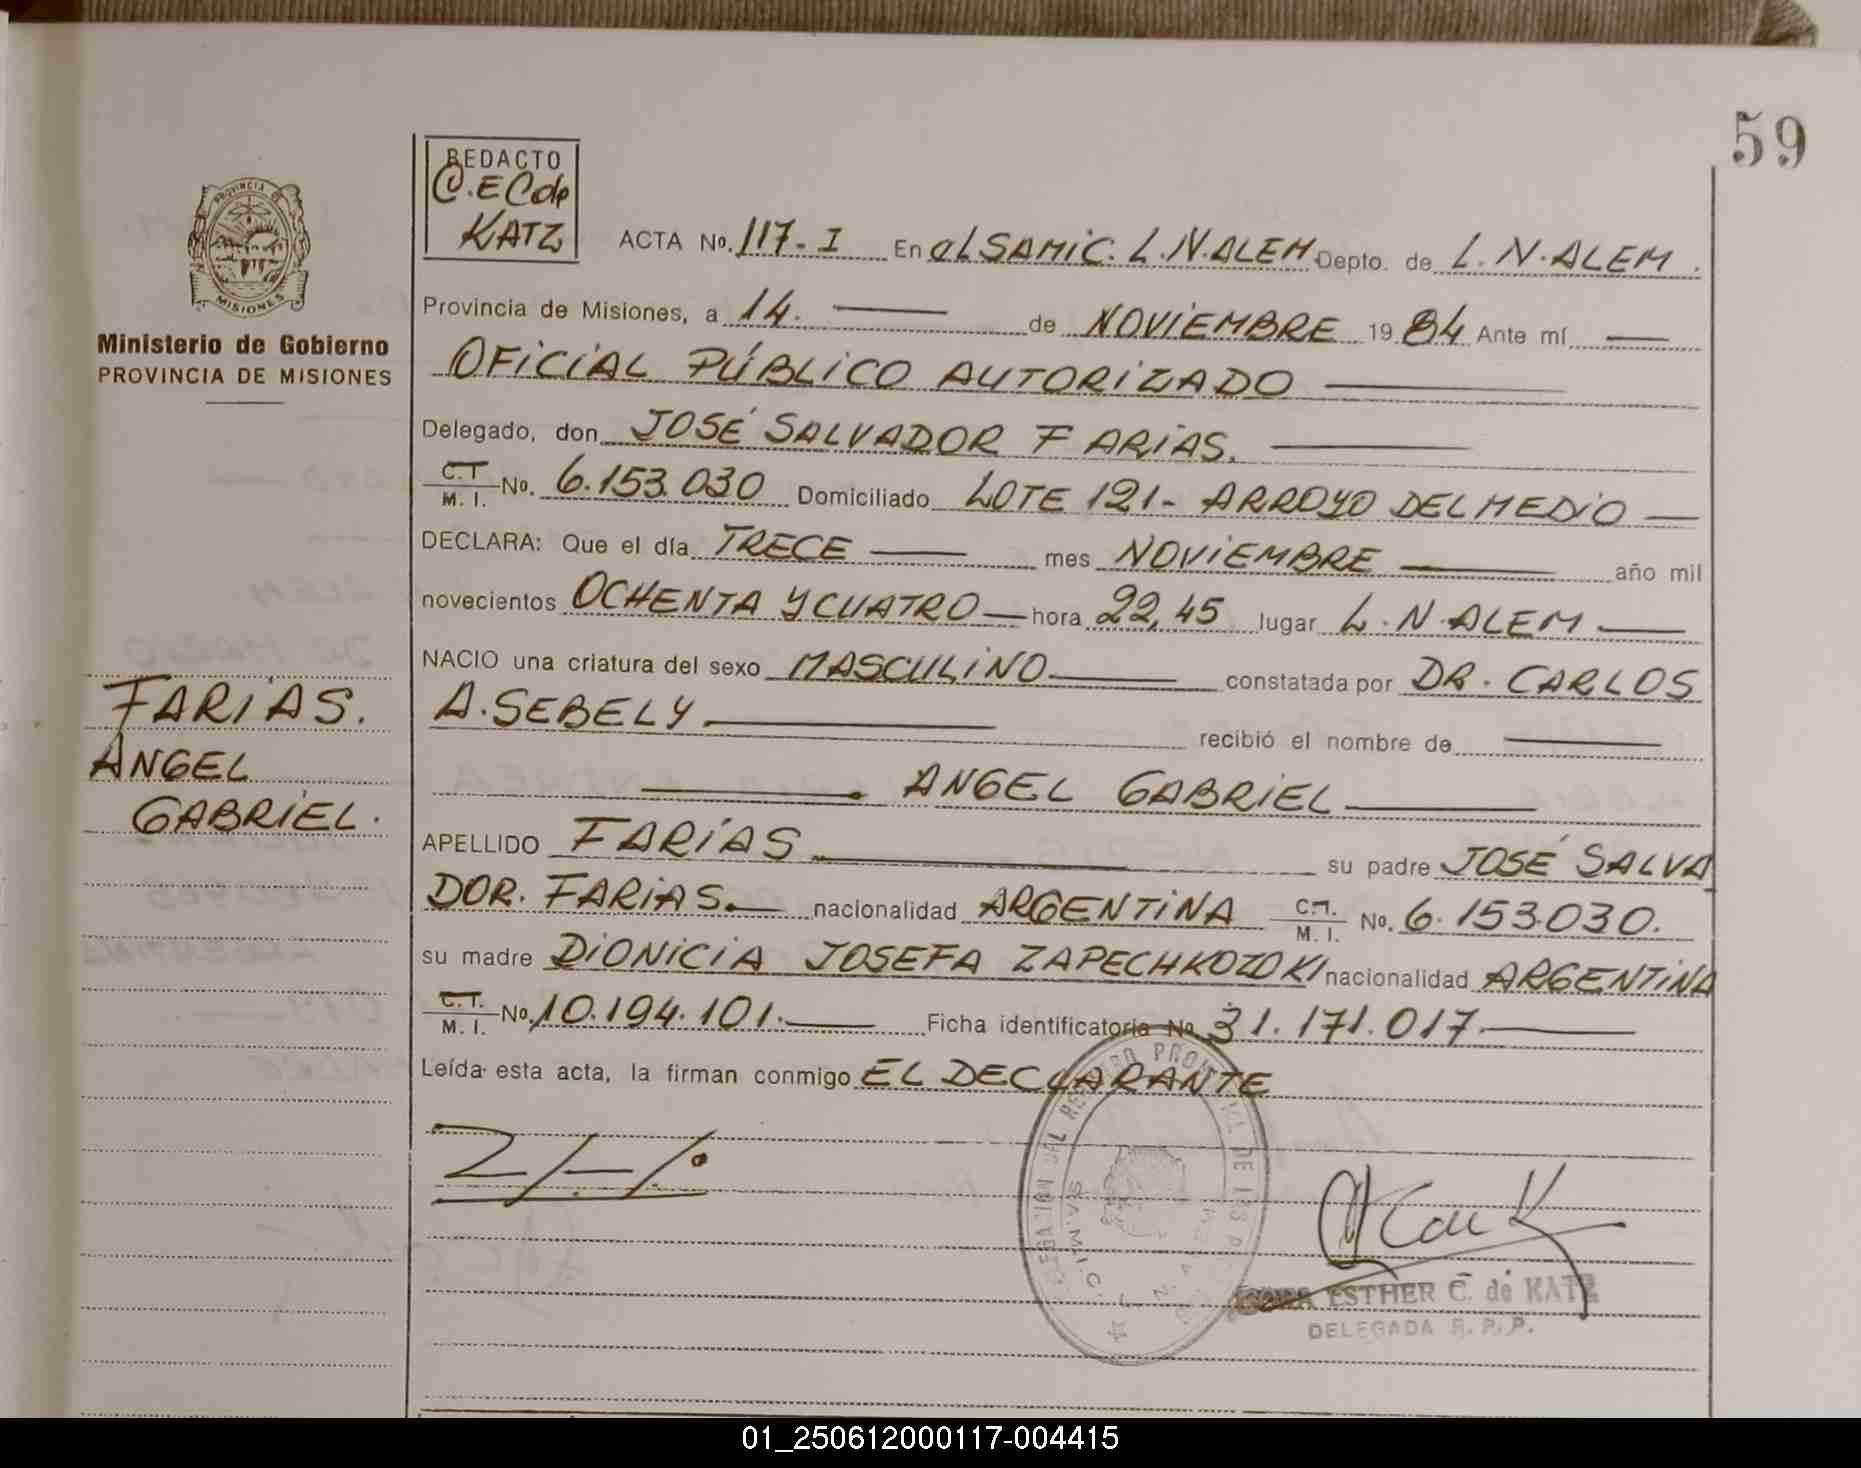 59
REDACTO
C.E C de
KATZ
PROVINCIA
MISIONES
Ministerio de Gobierno
PROVINCIA DE MISIONES
ACTA No. 117-I En el SAMIC. L.N.ALEM Depto. de L.N.ALEM.
Provincia de Misiones, a 14. — de NOVIEMBRE 1984 Ante mí —
OFICIAL PÚBLICO AUTORIZADO —
Delegado, don JOSÉ SALVADOR FARIAS. —
C.T
M. I. No. 6.153.030 Domiciliado LOTE 121- ARROYO DEL MEDIO —
DECLARA: Que el día TRECE — mes NOVIEMBRE — año mil
novecientos OCHENTA Y CUATRO — hora 22,45 lugar L.N.ALEM —
NACIO una criatura del sexo MASCULINO — constatada por DR. CARLOS
A. SEBELY — recibió el nombre de —
— ANGEL GABRIEL —
APELLIDO FARIAS — su padre JOSÉ SALVA
DOR. FARIAS. — nacionalidad ARGENTINA C.T.
M. I. No. 6.153.030.
su madre DIONICIA JOSEFA ZAPECHKOZOKI nacionalidad ARGENTINA
C.T.
M. I. No. 10.194.101. — Ficha identificatoria No 31.171.017. —
Leída esta acta, la firman conmigo EL DECLARANTE
FARIAS.
ANGEL
GABRIEL.
S.A.M.I.C.
ESTHER C. de KATZ
DELEGADA R. P. P.
01_250612000117-004415